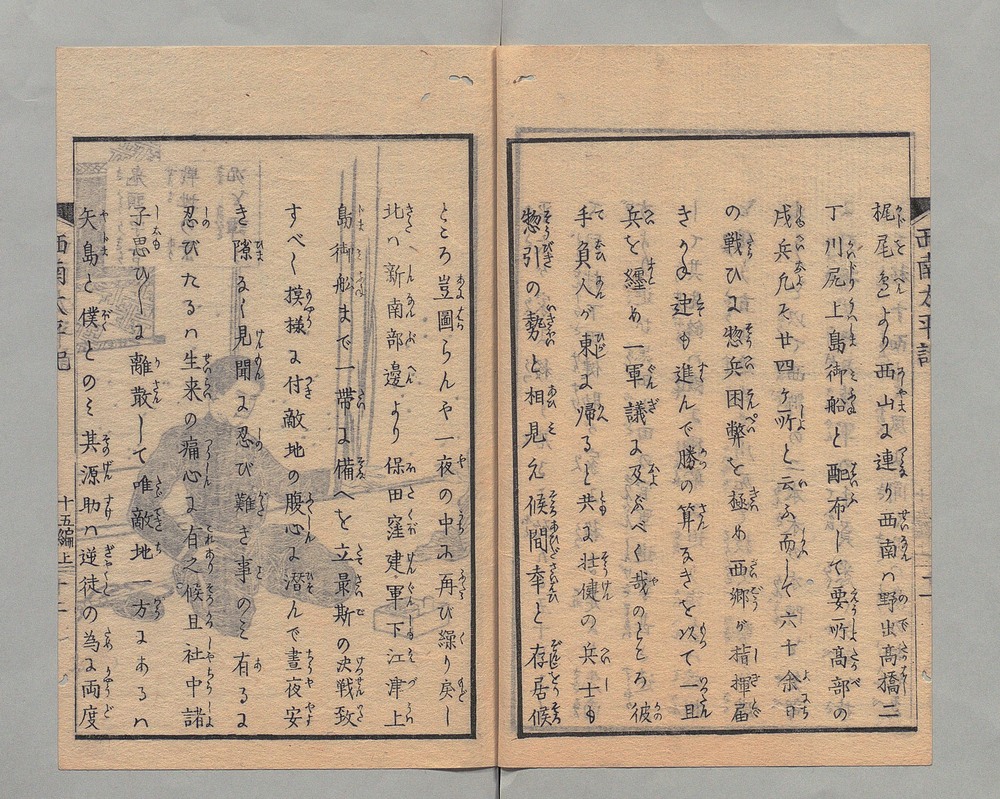 梶尾邑より西山に連り西南ハ野出髙橋二
丁川尻上島御船と配布して要所髙部の
戍兵凡そ廿四ヶ所と云ふ而して六十余日
の戦ひに惣兵困弊を極め西郷が指揮届
きかね迚も進んで勝の算なきを以て一且
兵を纏め一軍議に及ぶべく哉のところ彼
手負人が東に帰ると共に壮健の兵士も
惣引の勢と相見え候間幸と存居候
ところ豈圖らんや一夜の中に再び繰り戻し
北ハ新南部邊より保田窪建軍下江津上
島御船まで一帯に備へを立最斯の决戦致
すべく摸様に付敵地の腹心に潜んで晝夜安
き隙なく見聞に忍び難き事のミ有るに
忍びたるハ生来の痛心に有之候且社中諸
子思ひ〳〵に離散して唯敵地一方にあるハ
矢島と僕とのミ其源助ハ逆徒の為に両度
西南太平記
十五編上